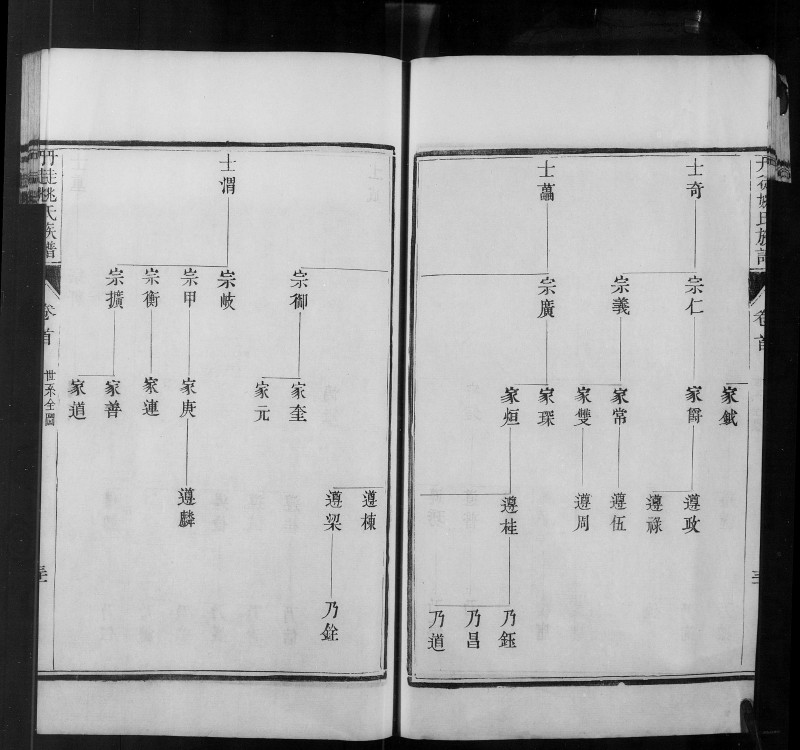 士奇
宗仁
宗義
家鉞
家爵
家常
家雙
遵政
遵祿
遵伍
遵周
士藟
宗廣
家琛
家烜
遵桂
乃鈺
乃昌
乃道
宗御
家奎
家元
遵棟
遵梁
乃銓
士渭
宗岐
宗甲
宗衡
宗擴
家庚
家連
家善
家道
遵麟
丹桂姚氏族譜
卷首
世系全圖